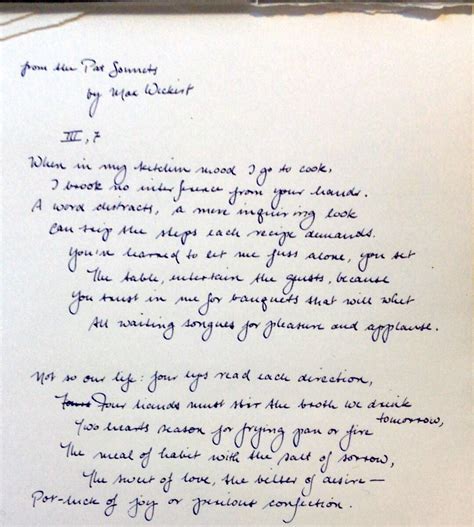 from the Pat Sonnets
by Max Wickert
III, 7
When in my kitchen mood I go to cook,
I brook no interference from your hands.
A word distracts, a mere inquiring look
can trip the steps each recipe demands.
You've learned to let me fuss alone, you set
The table, entertain the guests, because
You trust in me for banquets that will whet
All waiting tongues for pleasure and applause.
Not so our life: four eyes read each direction,
Four hands must stir the broth we drink
tomorrow,
Two hearts season for frying pan or fire
The meal of habit with the salt of sorrow,
The sweet of love, the bitter of desire —
Pot-luck of joy or perilous confection.